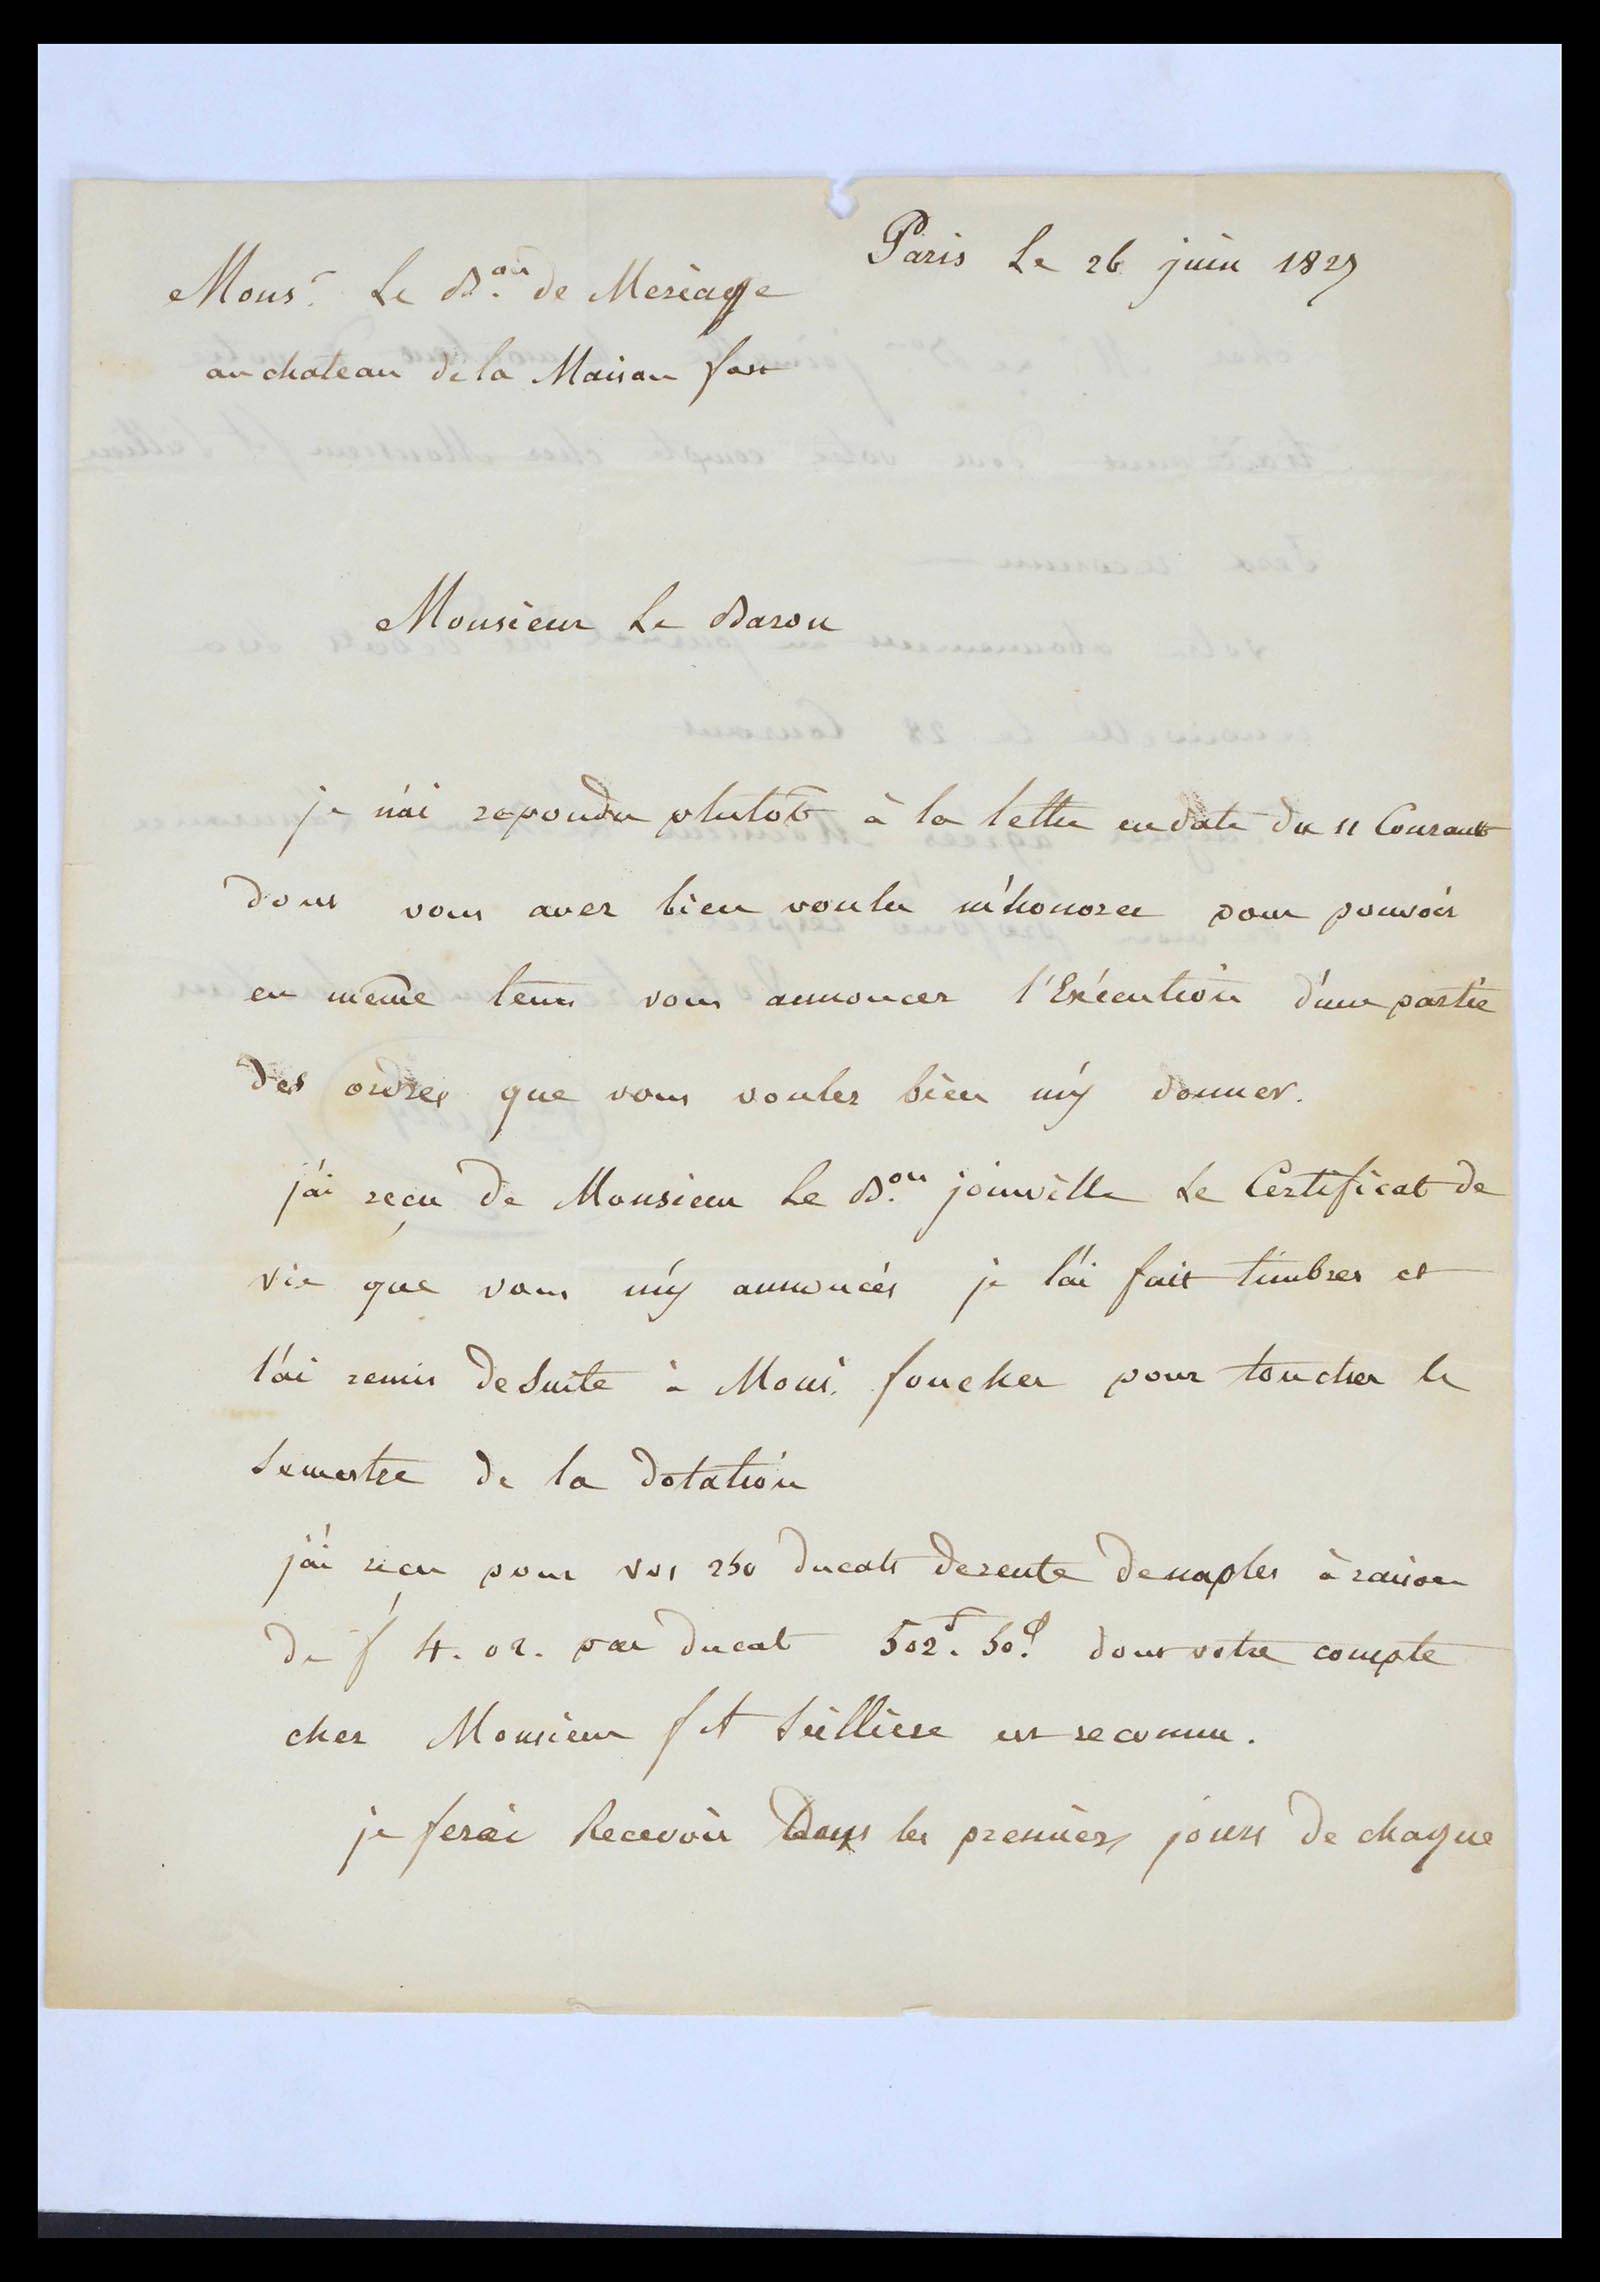 Paris Le 26 juin 1827
Monsr. Le Bon. de Meriage
au chateau de la Maison fort
Monsieur Le Baron
je n'ai repondu plutôt à la lettre en date du 11 Courant
dont vous avez bien voulu m'honorer pour pouvoir
en même tems vous annoncer l'Exécution d'une partie
des ordres que vous voulez bien m'y donner.
j'ai reçu de Monsieur Le Bon. joinville Le Certificat de
vie que vous m'y annoncés je l'ai fait timbrer et
l'ai remis de Suite à Monsr. foucher pour toucher le
Semestre de la dotation
j'ai reçu pour vos 250 ducats de rente de naples à raison
de f 4. 02. par ducat 502f. 50c. dont votre compte
chez Monsieur f A Seilliere est reconnu.
je ferai Recevoir Dans les premiers jours de chaque